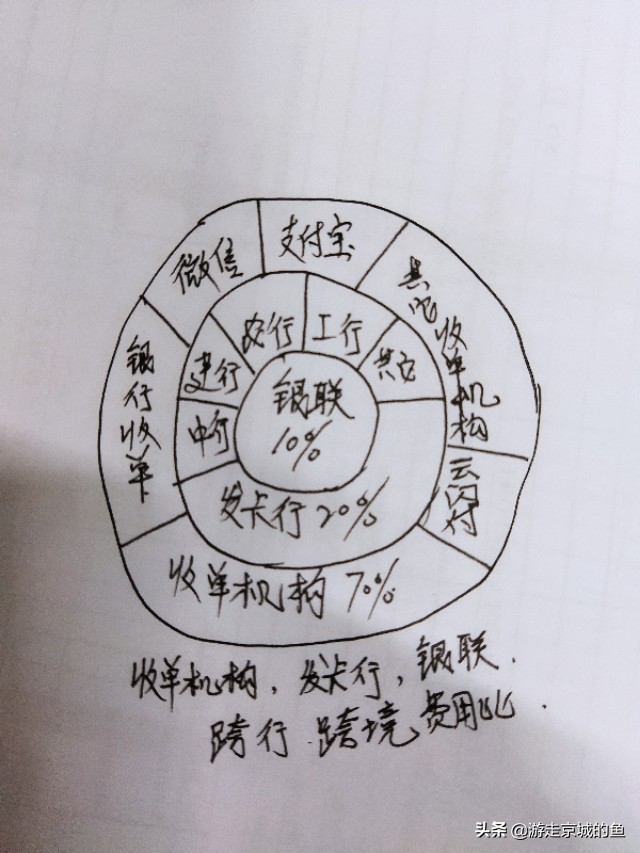 微信
支付宝
其它收单机构
云闪付
银行收单
收单机构 70%
中行
建行
农行
工行
其它
发卡行 20%
银联
10%
收单机构，发卡行，银联.
跨行 跨境 费用比.
头条 @游走京城的鱼